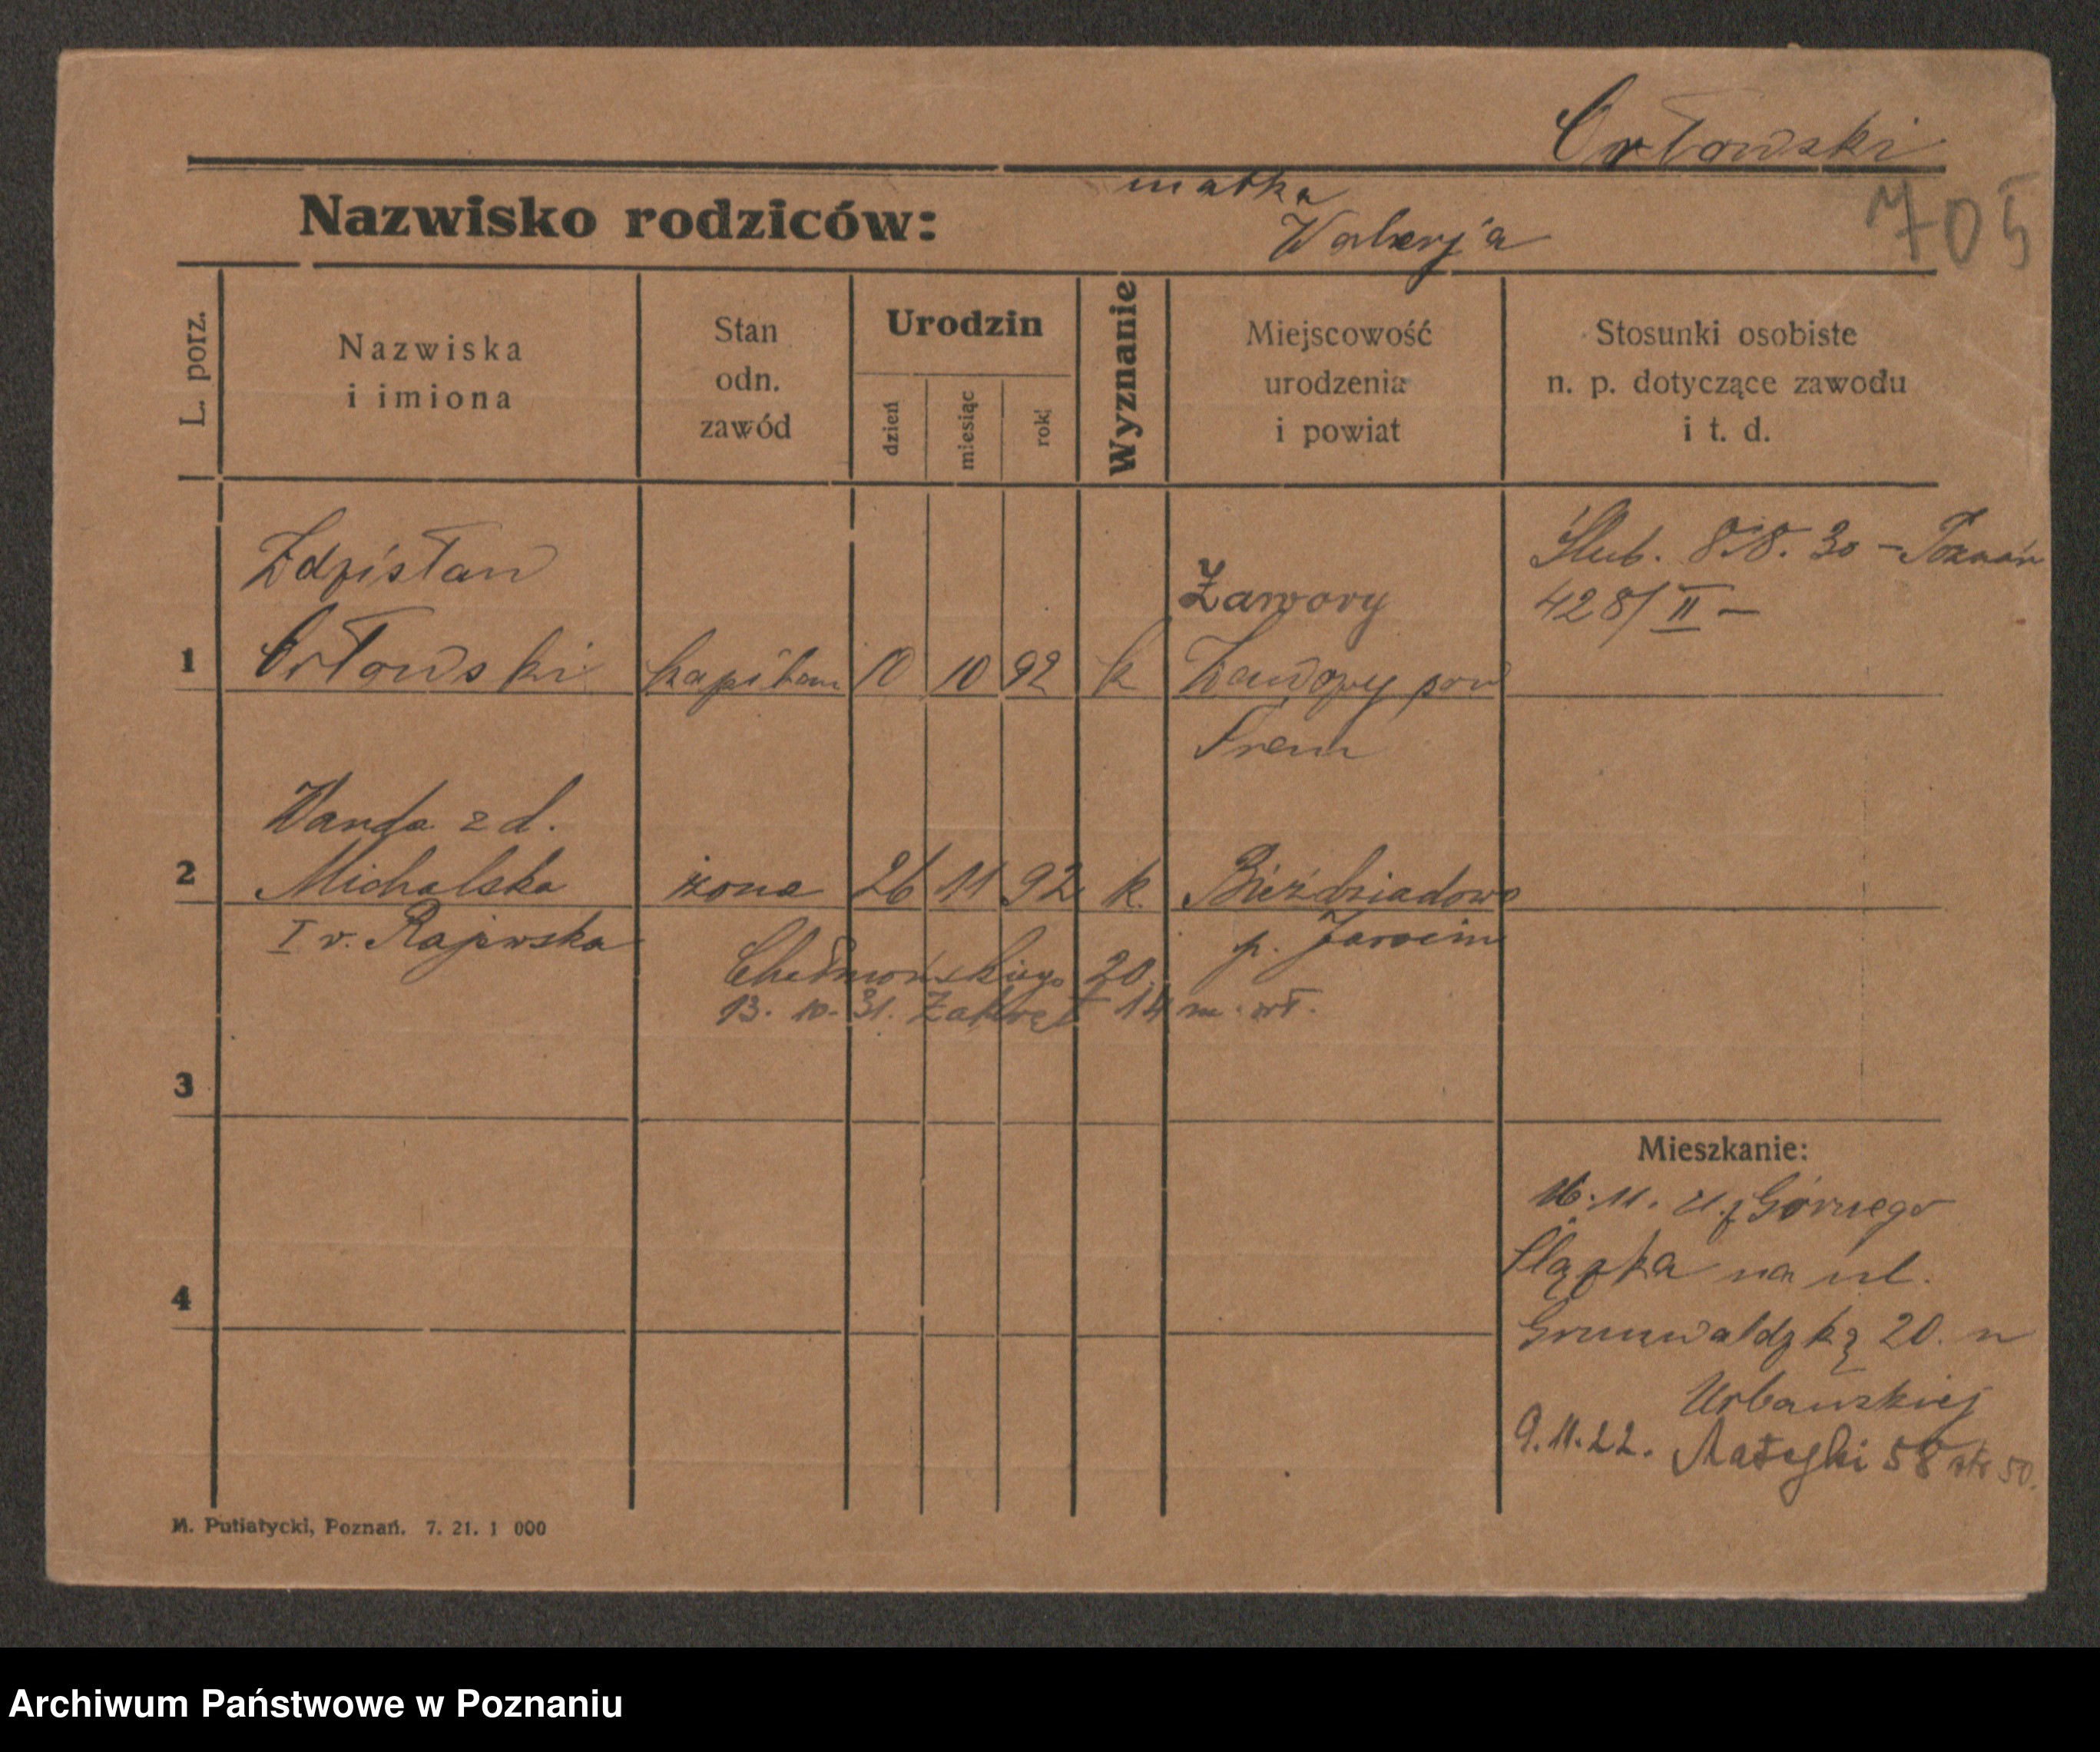 Orłowski
705
Nazwisko rodziców:
matka
Walerja
L. porz.
Nazwiska
i imiona
Stan
odn.
zawód
Urodzin
dzień
miesiąc
rok
Wyznanie
Miejscowość
urodzenia
i powiat
Stosunki osobiste
n. p. dotyczące zawodu
i t. d.
Zdzisław
Żawory
Ślub. 8/8. 30 – Poznań
428/II –
1 Orłowski kapitan 10 10 92 k Zawory pow
Śrem
Wanda z d.
2 Michalska żona 26 11 92 k. Bieździadowo
I v. Rajewska
p. Jarocin
Chełmońskiego 20.
13. 10. 31. Zakręt 14 m. wł.
3
Mieszkanie:
16. 11. 21. z Górnego
Śląska na ul.
4
Grunwaldzką 20. u
Urbanskiej
9. 11. 22. Matejki 58 50.
M. Putiatycki, Poznań. 7. 21. 1 000
Archiwum Państwowe w Poznaniu